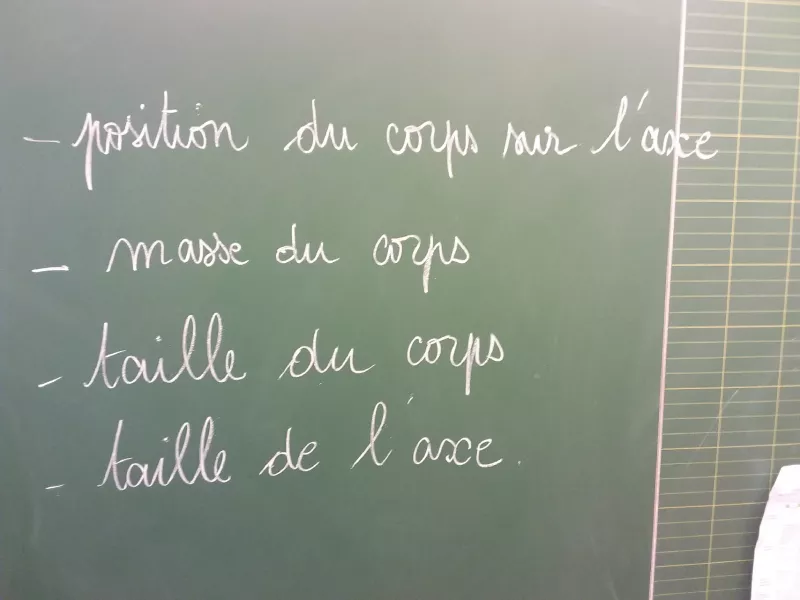 - position du corps sur l'axe
- masse du corps
- taille du corps
- taille de l'axe.